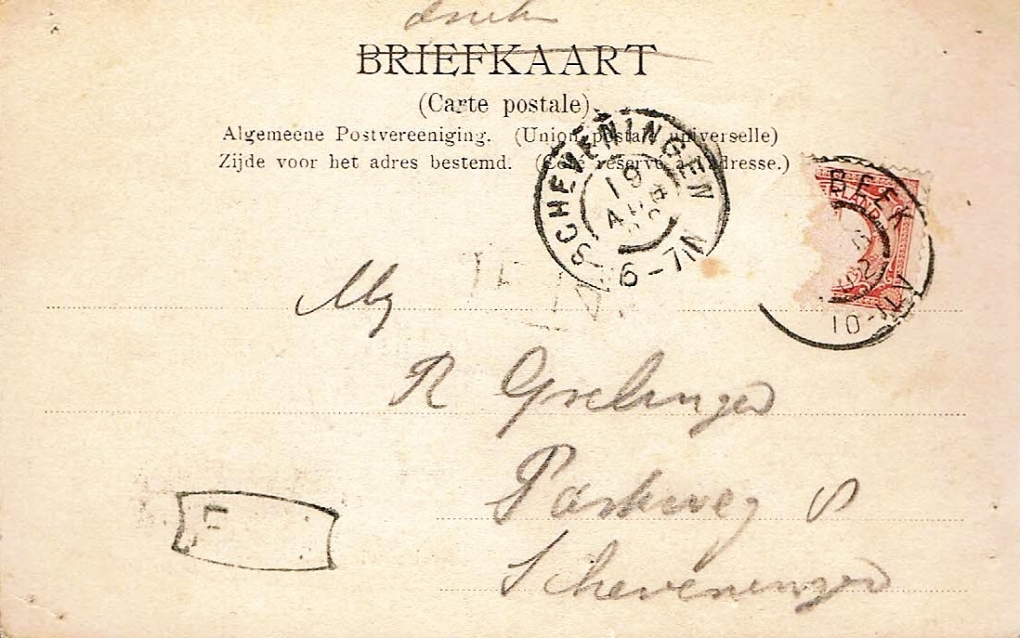 BRIEFKAART
(Carte postale)
Algemeene Postvereeniging. (Union postale universelle)
Zijde voor het adres bestemd. (Côté réservé à l'adresse.)
SCHEVENINGEN
19
AUG
6-7N
BEEK
10-
R
Parkweg 8
Scheveningen
F